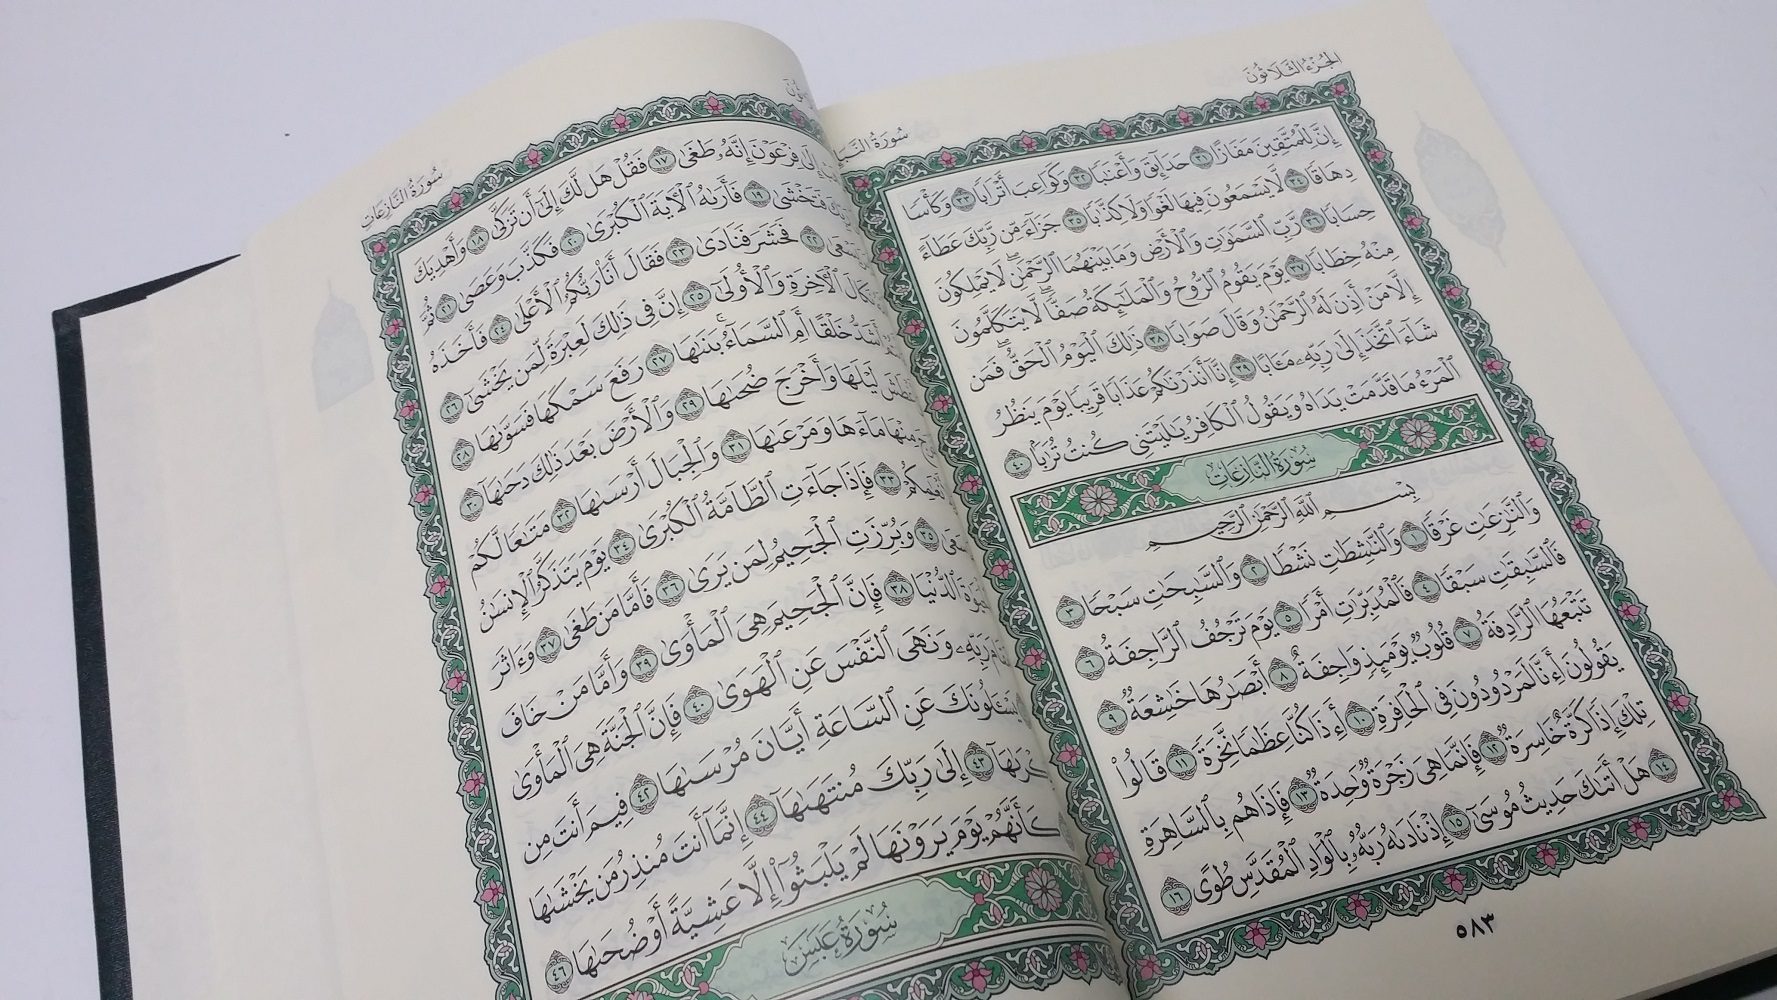 الجزء الثلاثون
سورة النبإ
إِنَّ لِلْمُتَّقِينَ مَفَازًا ٣١ حَدَآئِقَ وَأَعْنَٰبًا ٣٢ وَكَوَاعِبَ أَتْرَابًا ٣٣ وَكَأْسًا
دِهَاقًا ٣٤ لَّا يَسْمَعُونَ فِيهَا لَغْوًا وَلَا كِذَّٰبًا ٣٥ جَزَآءً مِّن رَّبِّكَ عَطَآءً
حِسَابًا ٣٦ رَّبِّ ٱلسَّمَٰوَٰتِ وَٱلْأَرْضِ وَمَا بَيْنَهُمَا ٱلرَّحْمَٰنِ ۖ لَا يَمْلِكُونَ
مِنْهُ خِطَابًا ٣٧ يَوْمَ يَقُومُ ٱلرُّوحُ وَٱلْمَلَٰٓئِكَةُ صَفًّا ۖ لَّا يَتَكَلَّمُونَ
إِلَّا مَنْ أَذِنَ لَهُ ٱلرَّحْمَٰنُ وَقَالَ صَوَابًا ٣٨ ذَٰلِكَ ٱلْيَوْمُ ٱلْحَقُّ ۖ فَمَن
شَآءَ ٱتَّخَذَ إِلَىٰ رَبِّهِۦ مَـَٔابًا ٣٩ إِنَّآ أَنذَرْنَٰكُمْ عَذَابًا قَرِيبًا يَوْمَ يَنظُرُ
ٱلْمَرْءُ مَا قَدَّمَتْ يَدَاهُ وَيَقُولُ ٱلْكَافِرُ يَٰلَيْتَنِى كُنتُ تُرَٰبًا ٤٠
سُورَةُ النَّازِعَاتِ
بِسْمِ ٱللَّهِ ٱلرَّحْمَٰنِ ٱلرَّحِيمِ
وَٱلنَّٰزِعَٰتِ غَرْقًا ١ وَٱلنَّٰشِطَٰتِ نَشْطًا ٢ وَٱلسَّٰبِحَٰتِ سَبْحًا ٣
فَٱلسَّٰبِقَٰتِ سَبْقًا ٤ فَٱلْمُدَبِّرَٰتِ أَمْرًا ٥ يَوْمَ تَرْجُفُ ٱلرَّاجِفَةُ ٦
تَتْبَعُهَا ٱلرَّادِفَةُ ٧ قُلُوبٌ يَوْمَئِذٍ وَاجِفَةٌ ٨ أَبْصَٰرُهَا خَٰشِعَةٌ ٩
يَقُولُونَ أَءِنَّا لَمَرْدُودُونَ فِى ٱلْحَافِرَةِ ١٠ أَءِذَا كُنَّا عِظَٰمًا نَّخِرَةً ١١ قَالُوا۟
تِلْكَ إِذًا كَرَّةٌ خَاسِرَةٌ ١٢ فَإِنَّمَا هِىَ زَجْرَةٌ وَٰحِدَةٌ ١٣ فَإِذَا هُم بِٱلسَّاهِرَةِ
١٤ هَلْ أَتَىٰكَ حَدِيثُ مُوسَىٰٓ ١٥ إِذْ نَادَىٰهُ رَبُّهُۥ بِٱلْوَادِ ٱلْمُقَدَّسِ طُوًى ١٦
٥٨٣
سورة النازعات
إِلَىٰ فِرْعَوْنَ إِنَّهُۥ طَغَىٰ ١٧ فَقُلْ هَل لَّكَ إِلَىٰٓ أَن تَزَكَّىٰ ١٨ وَأَهْدِيَكَ
فَتَخْشَىٰ ١٩ فَأَرَىٰهُ ٱلْءَايَةَ ٱلْكُبْرَىٰ ٢٠ فَكَذَّبَ وَعَصَىٰ ٢١ ثُمَّ
يَسْعَىٰ ٢٢ فَحَشَرَ فَنَادَىٰ ٢٣ فَقَالَ أَنَا۠ رَبُّكُمُ ٱلْأَعْلَىٰ ٢٤ فَأَخَذَهُ
نَكَالَ ٱلْءَاخِرَةِ وَٱلْأُولَىٰٓ ٢٥ إِنَّ فِى ذَٰلِكَ لَعِبْرَةً لِّمَن يَخْشَىٰٓ ٢٦
أَشَدُّ خَلْقًا أَمِ ٱلسَّمَآءُ ۚ بَنَىٰهَا ٢٧ رَفَعَ سَمْكَهَا فَسَوَّىٰهَا ٢٨
لَيْلَهَا وَأَخْرَجَ ضُحَىٰهَا ٢٩ وَٱلْأَرْضَ بَعْدَ ذَٰلِكَ دَحَىٰهَآ ٣٠
مِنْهَا مَآءَهَا وَمَرْعَىٰهَا ٣١ وَٱلْجِبَالَ أَرْسَىٰهَا ٣٢ مَتَٰعًا لَّكُمْ
٣٣ فَإِذَا جَآءَتِ ٱلطَّآمَّةُ ٱلْكُبْرَىٰ ٣٤ يَوْمَ يَتَذَكَّرُ ٱلْإِنسَٰنُ
سَعَىٰ ٣٥ وَبُرِّزَتِ ٱلْجَحِيمُ لِمَن يَرَىٰ ٣٦ فَأَمَّا مَن طَغَىٰ ٣٧ وَءَاثَرَ
ٱلدُّنْيَا ٣٨ فَإِنَّ ٱلْجَحِيمَ هِىَ ٱلْمَأْوَىٰ ٣٩ وَأَمَّا مَنْ خَافَ
مَقَامَ رَبِّهِۦ وَنَهَى ٱلنَّفْسَ عَنِ ٱلْهَوَىٰ ٤٠ فَإِنَّ ٱلْجَنَّةَ هِىَ ٱلْمَأْوَىٰ
يَسْـَٔلُونَكَ عَنِ ٱلسَّاعَةِ أَيَّانَ مُرْسَىٰهَا ٤٢ فِيمَ أَنتَ مِن
ذِكْرَىٰهَآ ٤٣ إِلَىٰ رَبِّكَ مُنتَهَىٰهَآ ٤٤ إِنَّمَآ أَنتَ مُنذِرُ مَن يَخْشَىٰهَا
كَأَنَّهُمْ يَوْمَ يَرَوْنَهَا لَمْ يَلْبَثُوٓا۟ إِلَّا عَشِيَّةً أَوْ ضُحَىٰهَا ٤٦
سُورَةُ عَبَسَ